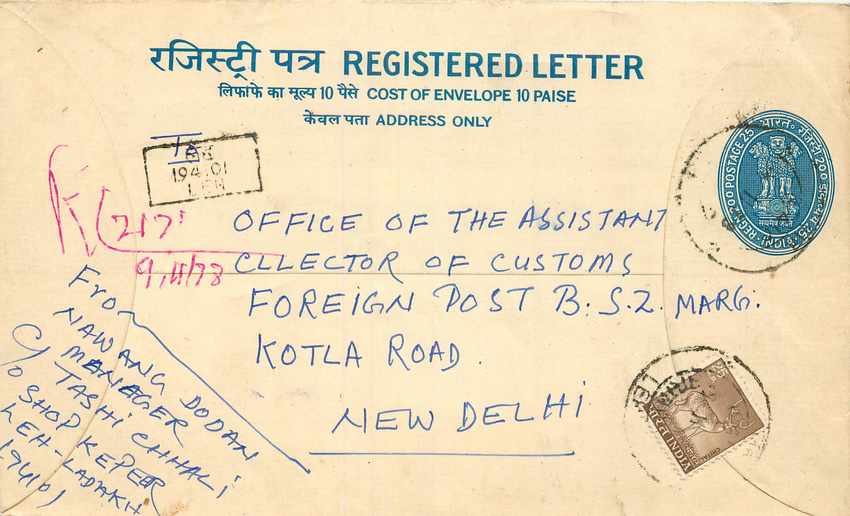 रजिस्ट्री पत्र REGISTERED LETTER
लिफाफे का मूल्य 10 पैसे COST OF ENVELOPE 10 PAISE
केवल पता ADDRESS ONLY
To
194101
LEH
R 217
9/11/78
OFFICE OF THE ASSISTANT
CLLECTOR OF CUSTOMS
FOREIGN POST B.S.Z. MARG.
KOTLA ROAD.
NEW DELHI
From
NAWANG DODAN
MANAGER
C/o TASHI CHHALI
SHOP KEPEER
LEH-LADAKH
194101
भारत INDIA
REGN 200 POSTAGE 25
INDIA
LEH